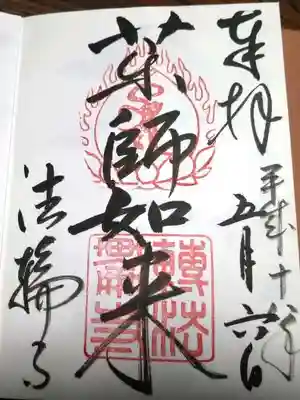 奉拝
平成十
五月六日
薬師如来
法輪寺
轉法